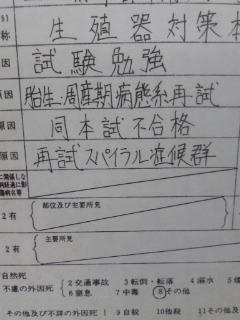 称 生殖器対策本
原因 試験勉強
原因 胎生・周産期病態系再試
原因 同本試不合格
原因 再試スパイラル症候群
に関係しな
2有 部位及び主要所見
2有 主要所見
自然死
不慮の外因死 2交通事故 3転倒・転落 4溺水 5煙
6窒息 7中毒 ⑧その他
その他及び不詳の外因死 9自殺 10他殺 11その他及